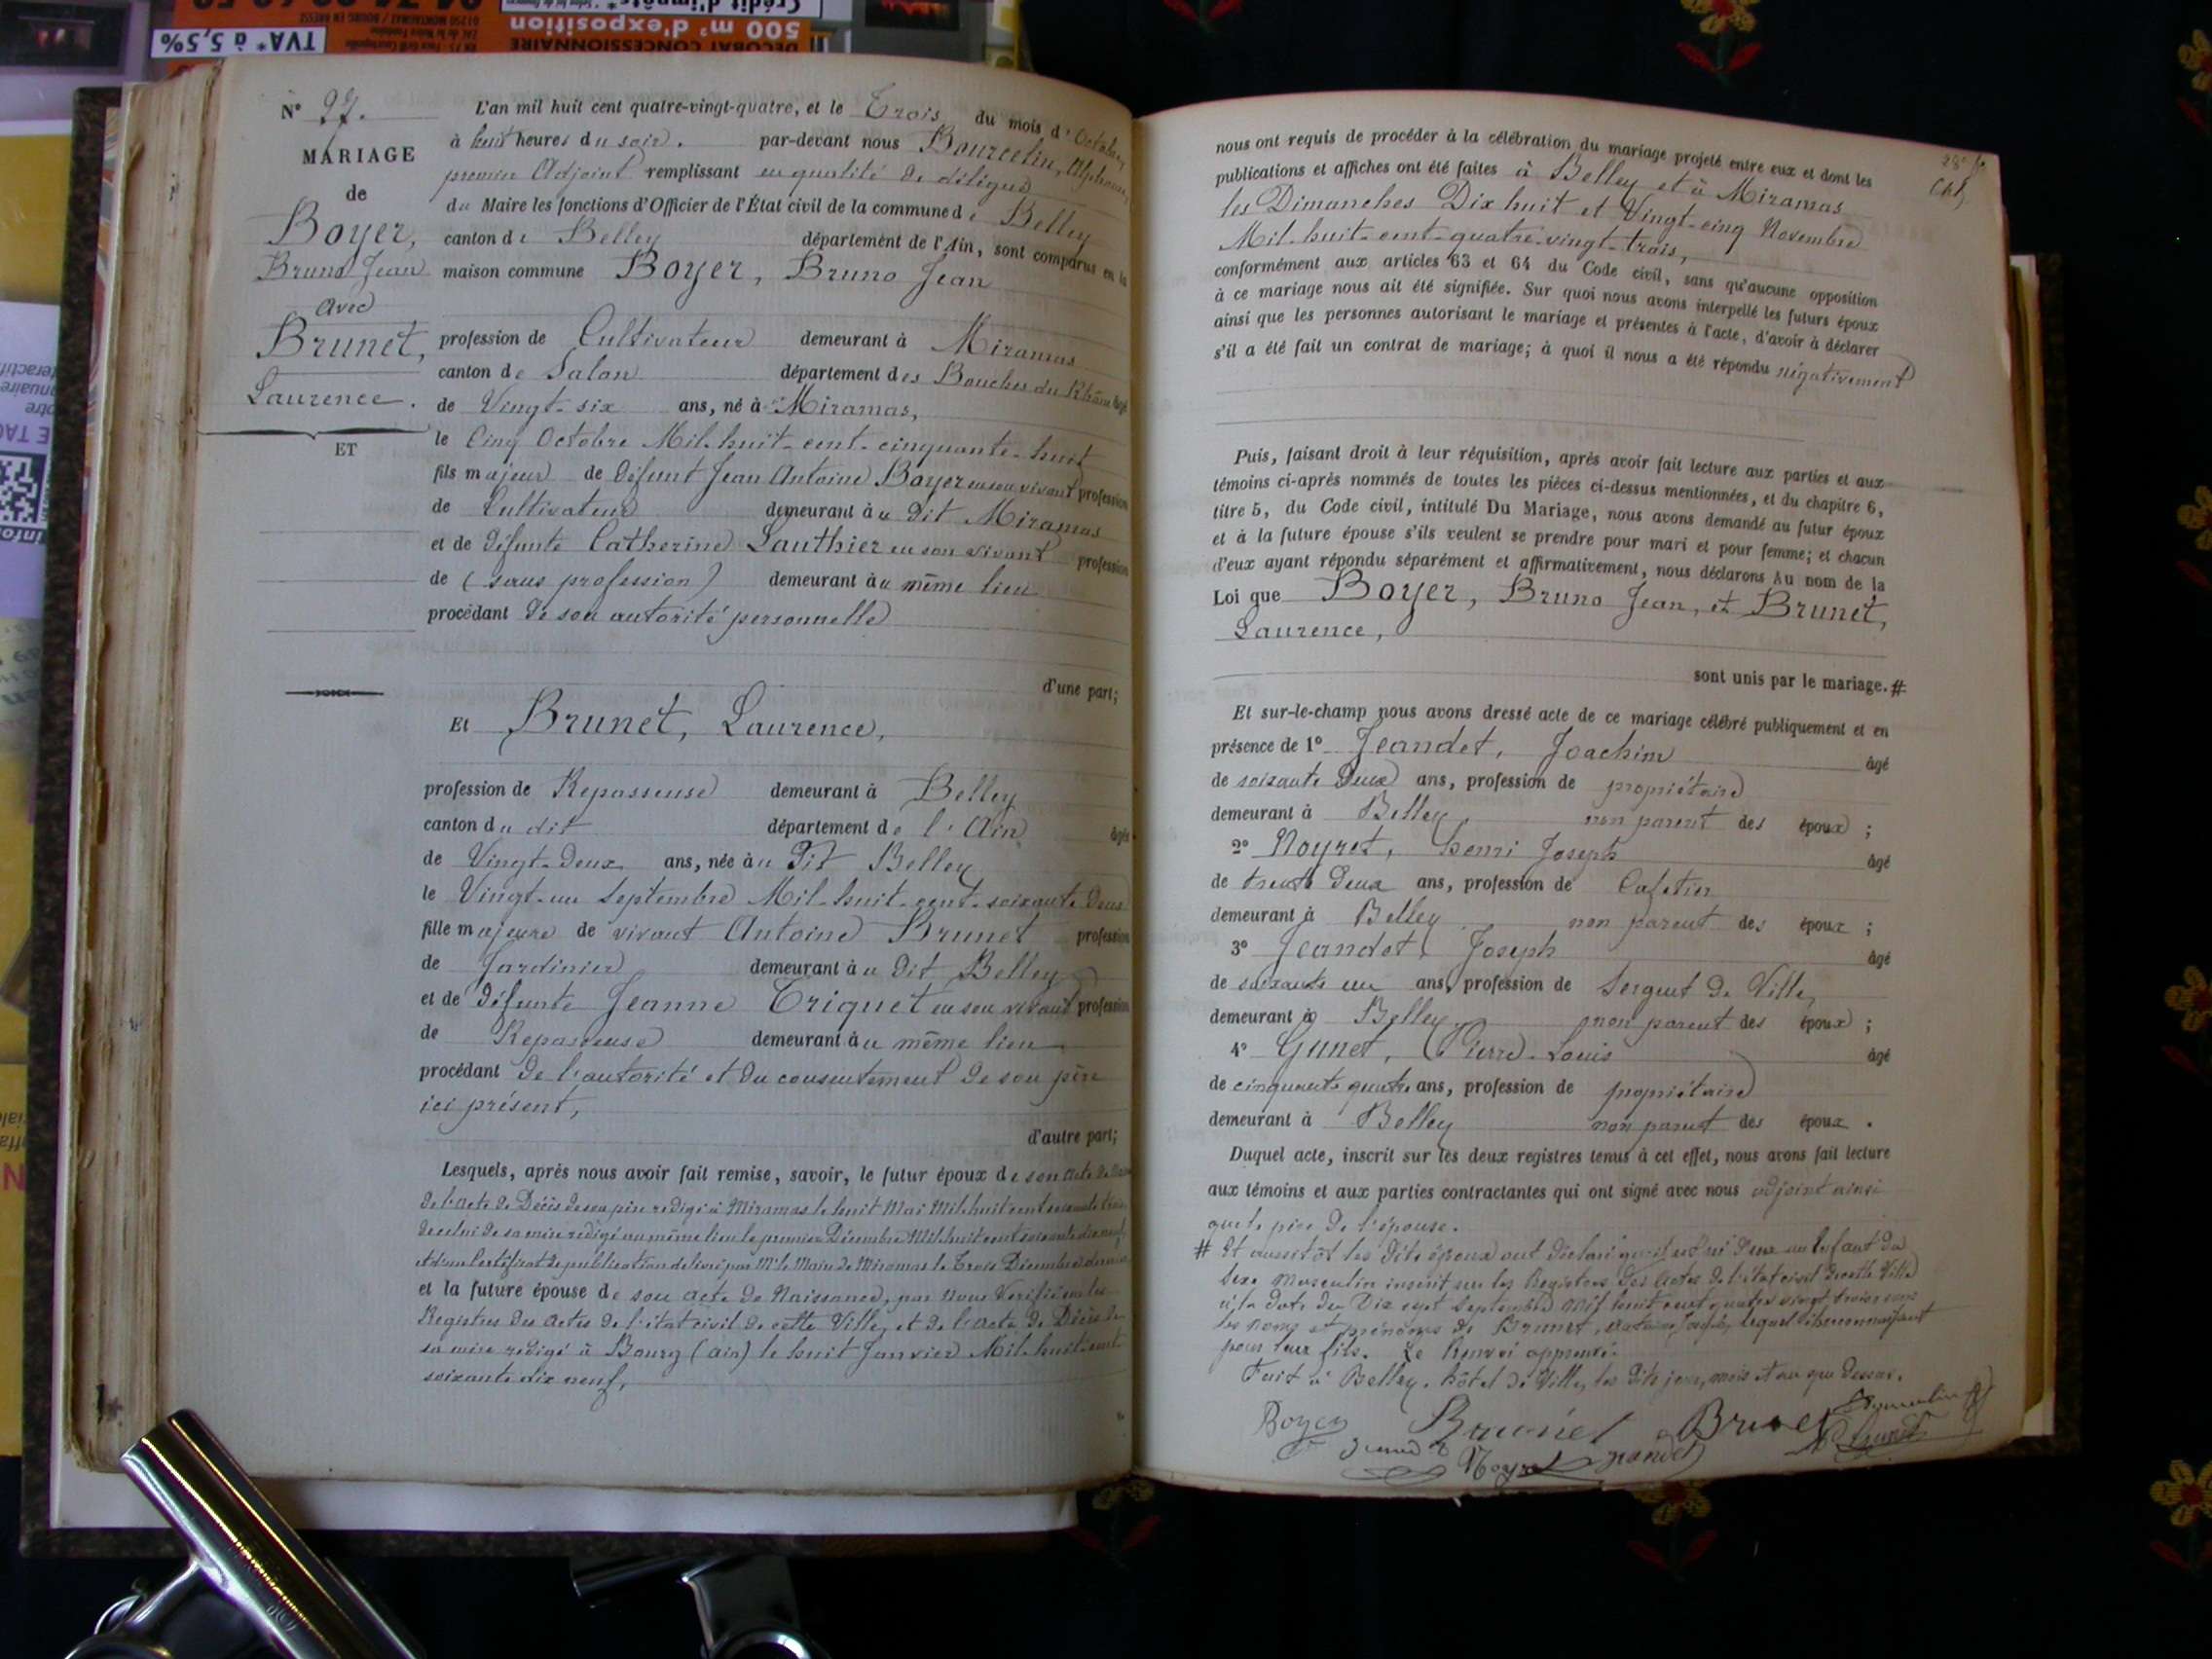 500 m² d'exposition
DECOBAT CONCESSIONNAIRE
TVA* à 5,5%
N° 27.
MARIAGE
de
Boyer,
Bruno Jean
Avec
Brunet,
Laurence.
ET
L'an mil huit cent quatre-vingt-quatre, et le Trois du mois d'Octobre
à huit heures du soir. par-devant nous Bourcelin, Alphonse,
premier Adjoint remplissant en qualité de délégué
du Maire les fonctions d'Officier de l'État civil de la commune de Belley
canton de Belley département de l'Ain, sont comparus en la
maison commune Boyer, Bruno Jean
profession de Cultivateur demeurant à Miramas
canton de Salon département des Bouches du Rhône âgé
de Vingt-six ans, né à Miramas,
le Cinq Octobre Mil-huit-cent-cinquante-huit
fils majeur de défunt Jean Antoine Boyer en son vivant profession
de Cultivateur demeurant au dit Miramas
et de défunte Catherine Lauthier en son vivant profession
de (sans profession) demeurant au même lieu
procédant de son autorité personnelle
d'une part;
Et Brunet, Laurence,
profession de Repasseuse demeurant à Belley
canton du dit département de l'Ain âgée
de Vingt-deux ans, née au dit Belley
le Vingt-un Septembre Mil-huit-cent-soixante deux
fille majeure de vivant Antoine Brunet profession
de Jardinier demeurant au dit Belley
et de défunte Jeanne Triquet en son vivant profession
de Repasseuse demeurant au même lieu
procédant de l'autorité et du consentement de son père
ici présent,
d'autre part;
Lesquels, après nous avoir fait remise, savoir, le futur époux de son acte de
de l'acte de Décès de son père rédigé à Miramas le huit Mai Mil huit cent soixante trois
de celui de sa mère rédigé au même lieu le premier Décembre Mil huit cent soixante dix neuf,
et d'un Certificat de publication délivré par Mr le Maire de Miramas le Trois Décembre dernier
et la future épouse de son acte de Naissance, par nous Vérifié sur les
Registres des actes de l'état civil de cette Ville, et de l'acte de Décès de
sa mère rédigé à Bourg (Ain) le huit Janvier Mil-huit-cent-
soixante dix neuf,
nous ont requis de procéder à la célébration du mariage projeté entre eux et dont les
publications et affiches ont été faites à Belley et à Miramas
les Dimanches Dix huit et Vingt-cinq Novembre
Mil-huit-cent-quatre-vingt-trois,
conformément aux articles 63 et 64 du Code civil, sans qu'aucune opposition
à ce mariage nous ait été signifiée. Sur quoi nous avons interpellé les futurs époux
ainsi que les personnes autorisant le mariage et présentes à l'acte, d'avoir à déclarer
s'il a été fait un contrat de mariage; à quoi il nous a été répondu négativement
Puis, faisant droit à leur réquisition, après avoir fait lecture aux parties et aux
témoins ci-après nommés de toutes les pièces ci-dessus mentionnées, et du chapitre 6,
titre 5, du Code civil, intitulé Du Mariage, nous avons demandé au futur époux
et à la future épouse s'ils veulent se prendre pour mari et pour femme; et chacun
d'eux ayant répondu séparément et affirmativement, nous déclarons Au nom de la
Loi que Boyer, Bruno Jean, et Brunet,
Laurence,
sont unis par le mariage. #
Et sur-le-champ nous avons dressé acte de ce mariage célébré publiquement et en
présence de 1° Jeandet, Joachim âgé
de soixante deux ans, profession de propriétaire
demeurant à Belley, non parent des époux;
2° Noyret, Henri Joseph âgé
de trente deux ans, profession de Cafetier
demeurant à Belley non parent des époux;
3° Jeandet, Joseph âgé
de soixante un ans, profession de Sergent de Ville,
demeurant à Belley, non parent des époux;
4° Gunet, Pierre-Louis âgé
de cinquante quatre ans, profession de propriétaire
demeurant à Belley non parent des époux.
Duquel acte, inscrit sur les deux registres tenus à cet effet, nous avons fait lecture
aux témoins et aux parties contractantes qui ont signé avec nous adjoint ainsi
que le père de l'épouse.
# Et aussitôt les dits époux ont déclaré qu'il est né d'eux un Enfant du
Sexe Masculin inscrit sur les Registres des Actes de l'état civil de cette Ville
à la date du Dix sept Septembre Mil huit cent quatre vingt trois sous
les noms et prénoms de Brunet, Antoine Joseph, lequel ils reconnaissent
pour leur fils. Le Renvoi approuvé.
Fait à Belley, hôtel de Ville, les dits jour, mois et an que dessus.
Boyer Brunet Brunet
Noyret Jeandet